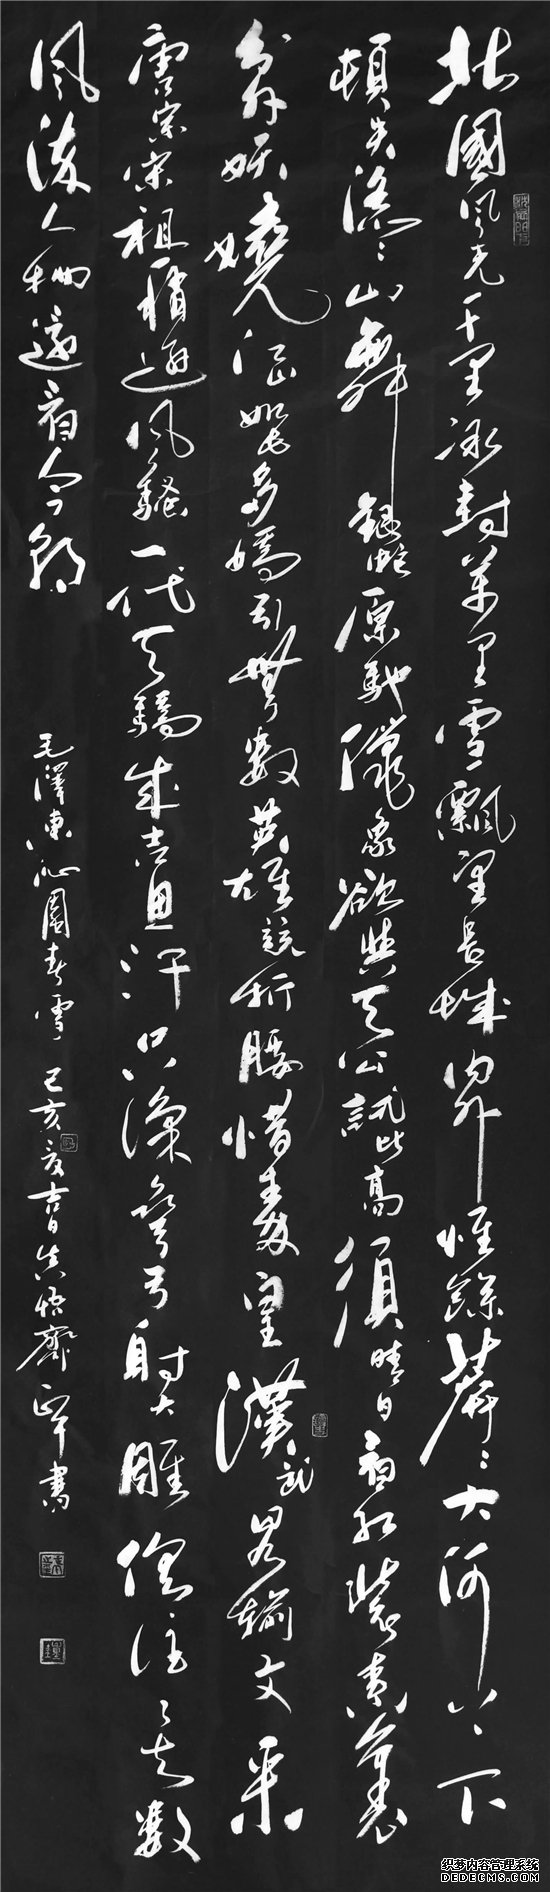 北國風光千里冰封萬里雪飄望長城內外惟餘莽〻大河上下
頓失滔〻山舞銀蛇原馳蠟象欲與天公試比高須晴日看紅裝素裹
分外妖嬈江山如此多嬌引無數英雄競折腰惜秦皇漢武略輸文采
唐宗宋祖稍遜風騷一代天驕成吉思汗只識彎弓射大雕俱往矣數
風流人物還看今朝
毛澤東沁園春雪 己亥夏吉日 悟齋 書
织梦内容管理系统
DEDECMS.COM